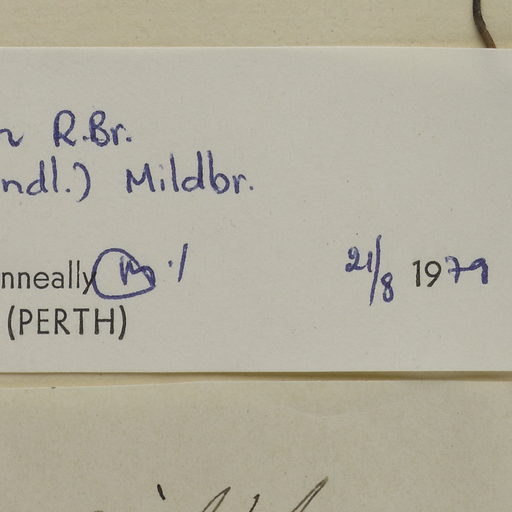 R.Br.
ndl.) Mildbr.
nneally 21/8 1979
(PERTH)